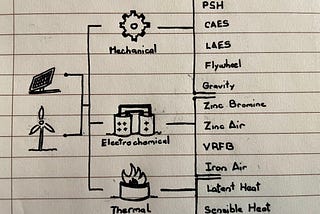 PSH
CAES
Mechanical
LAES
Flywheel
Gravity
Zinc Bromine
Zinc Air
Electrochemical
VRFB
Iron Air
Latent Heat
Thermal
Sensible Heat